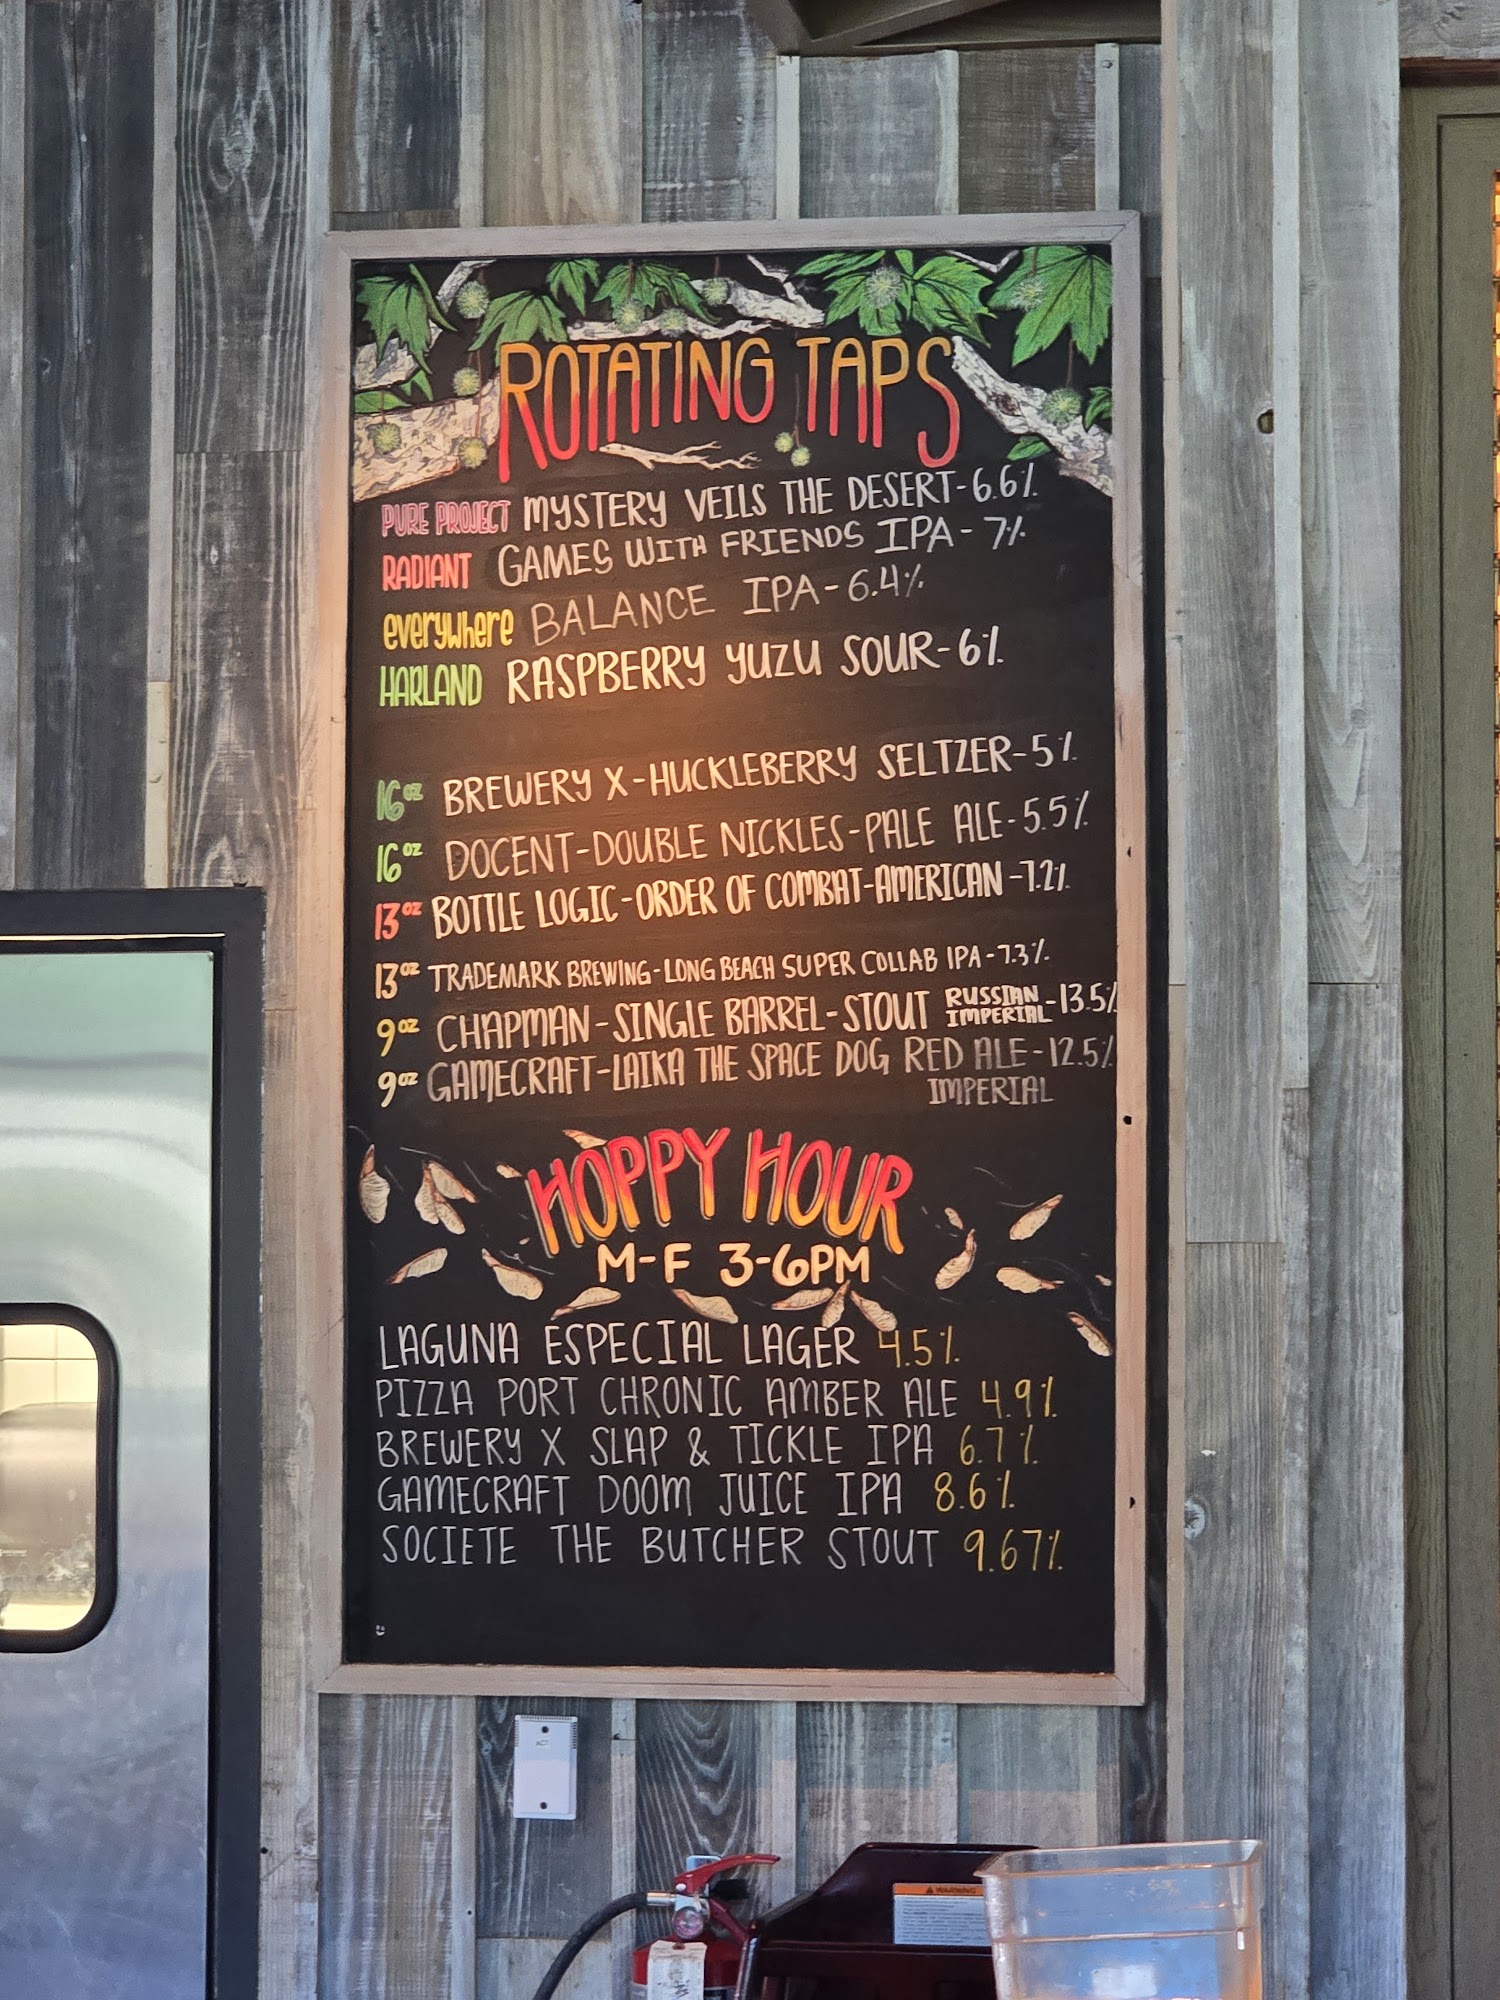 ROTATING TAPS
PURE PROJECT MYSTERY VEILS THE DESERT-6.6%
RADIANT GAMES WITH FRIENDS IPA-7%
everywhere BALANCE IPA-6.4%
HARLAND RASPBERRY YUZU SOUR-6%
16oz BREWERY X-HUCKLEBERRY SELTZER-5%
16oz DOCENT-DOUBLE NICKLES-PALE ALE-5.5%
13oz BOTTLE LOGIC-ORDER OF COMBAT-AMERICAN-7.2%
13oz TRADEMARK BREWING-LONG BEACH SUPER COLLAB IPA-7.3%
9oz CHAPMAN-SINGLE BARREL-STOUT RUSSIAN IMPERIAL-13.5%
9oz GAMECRAFT-LAIKA THE SPACE DOG RED ALE-12.5%
IMPERIAL
HOPPY HOUR
M-F 3-6PM
LAGUNA ESPECIAL LAGER 4.5%
PIZZA PORT CHRONIC AMBER ALE 4.9%
BREWERY X SLAP & TICKLE IPA 6.7%
GAMECRAFT DOOM JUICE IPA 8.6%
SOCIETE THE BUTCHER STOUT 9.67%
WARNING